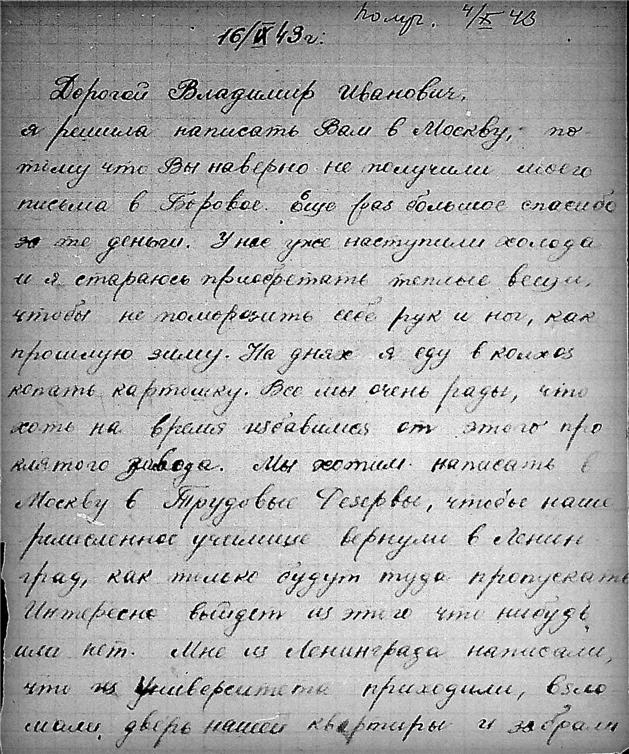 получ. 4/X 43
16/IX 43 г.
Дорогой Владимир Иванович,
я решила написать Вам в Москву, по-
тому что Вы наверно не получили моего
письма в Боровое. Еще раз большое спасибо
за те деньги. У нас уже наступили холода
и я стараюсь приобретать теплые вещи,
чтобы не поморозить себе рук и ног, как
прошлую зиму. На днях я еду в колхоз
копать картошку. Все мы очень рады, что
хоть на время избавимся от этого про
клятого завода. Мы хотим написать в
Москву в Трудовые Резервы, чтобы наше
ремесленное училище вернули в Ленин
град, как только будут туда пропускать
Интересно выйдет из этого что нибудь
или нет. Мне из Ленинграда написали,
что из Университета приходили, взло
мали дверь нашей квартиры и забрали